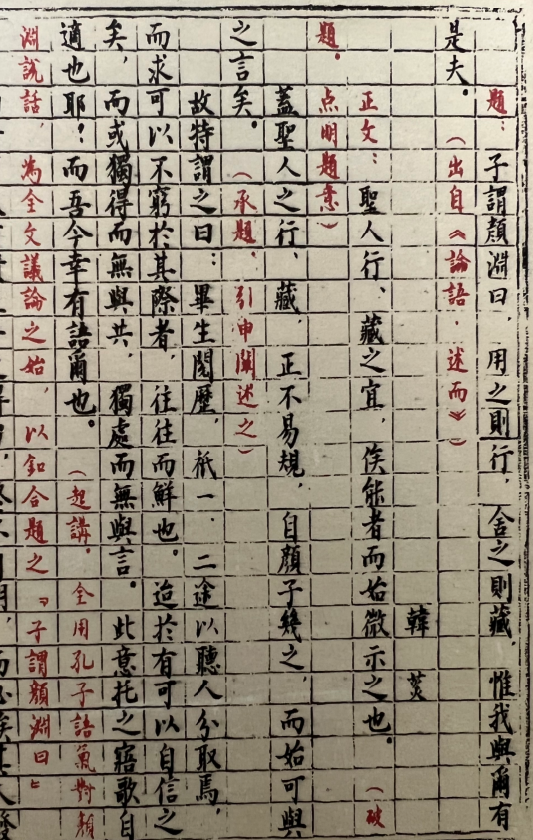 題：子謂顏淵曰，用之則行，舍之則藏，惟我與爾有
是夫。（出自《論語．述而》）
韓菼
正文：聖人行、藏之宜，俟能者而始微示之也。（破
題。点明題意）
蓋聖人之行、藏，正不易規，自顏子幾之，而始可與
之言矣。（承題，引申闡述之）
故特謂之曰：畢生閱歷，祇一、二途以聽人分取焉，
而求可以不窮於其際者，往往而鮮也。迨於有可以自信之
矣，而或獨得而無與共，獨處而無與言。此意托之寤歌自
適也耶！而吾今幸有語爾也。（起講。全用孔子語氣對顏
淵說話，為全文議論之始，以釦合題之『子謂顏淵曰』